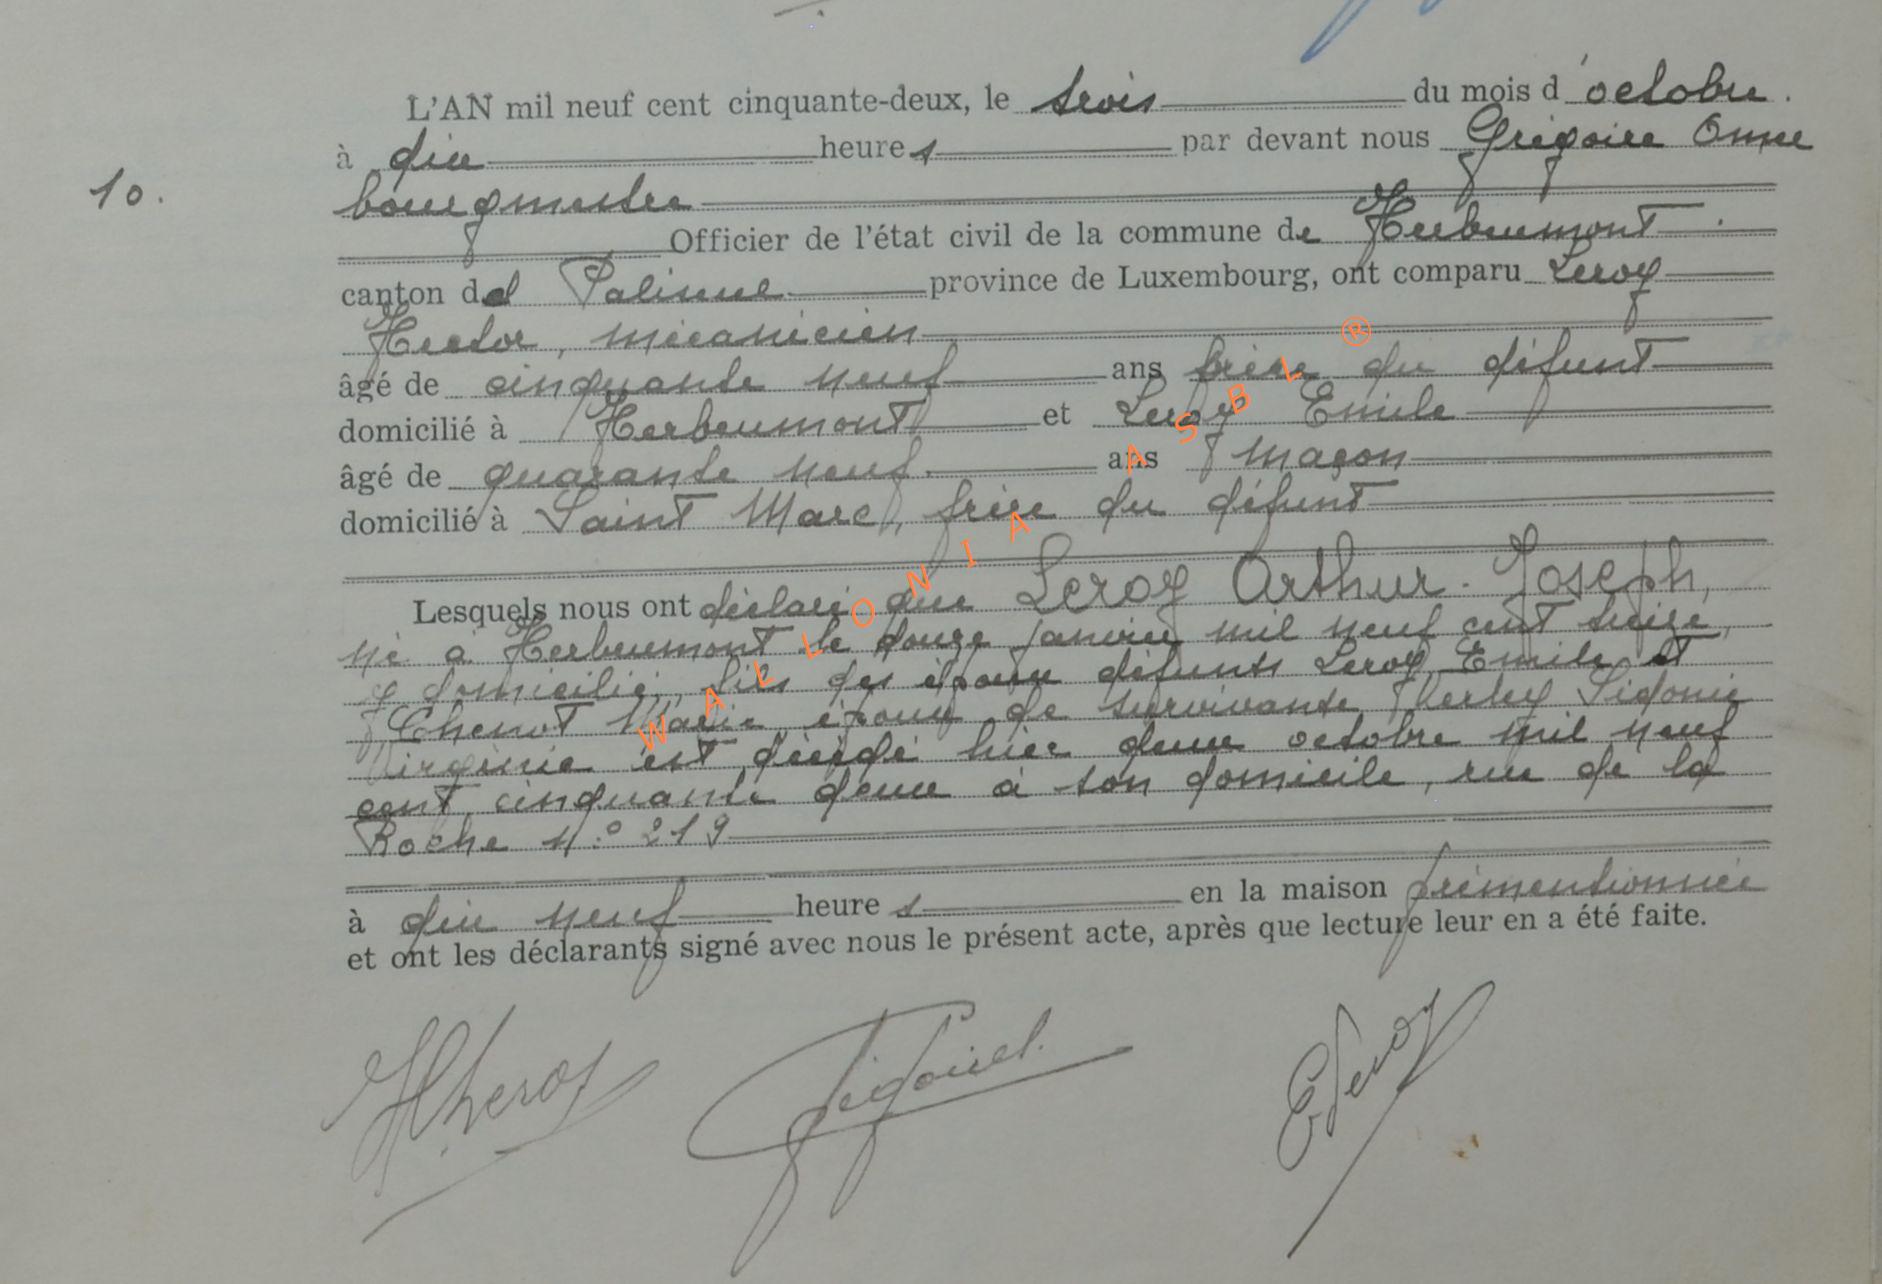 L'AN mil neuf cent cinquante-deux, le trois du mois d'octobre.
à dix heures par devant nous Grégoire Omer
10.
bourgmestre
Officier de l'état civil de la commune de Herbeumont
canton de Paliseul province de Luxembourg, ont comparu Leroy
Hector, mécanicien
âgé de cinquante neuf ans frère du défunt
domicilié à Herbeumont et Leroy Emile
âgé de quarante neuf ans maçon
domicilié à Saint Marc, frère du défunt
Lesquels nous ont déclaré que Leroy Arthur-Joseph,
né à Herbeumont le douze janvier mil neuf cent seize,
y domicilié, fils des époux défunts Leroy Emile et
Chenot Marie époux de survivante Sidonie
Virginie est décédé hier deux octobre mil neuf
cent cinquante deux à son domicile, rue de la
Roche N.° 219
à dix neuf heures en la maison prémentionnée
et ont les déclarants signé avec nous le présent acte, après que lecture leur en a été faite.
HLeroy
ELeroy
WALLONIA ASBL ®